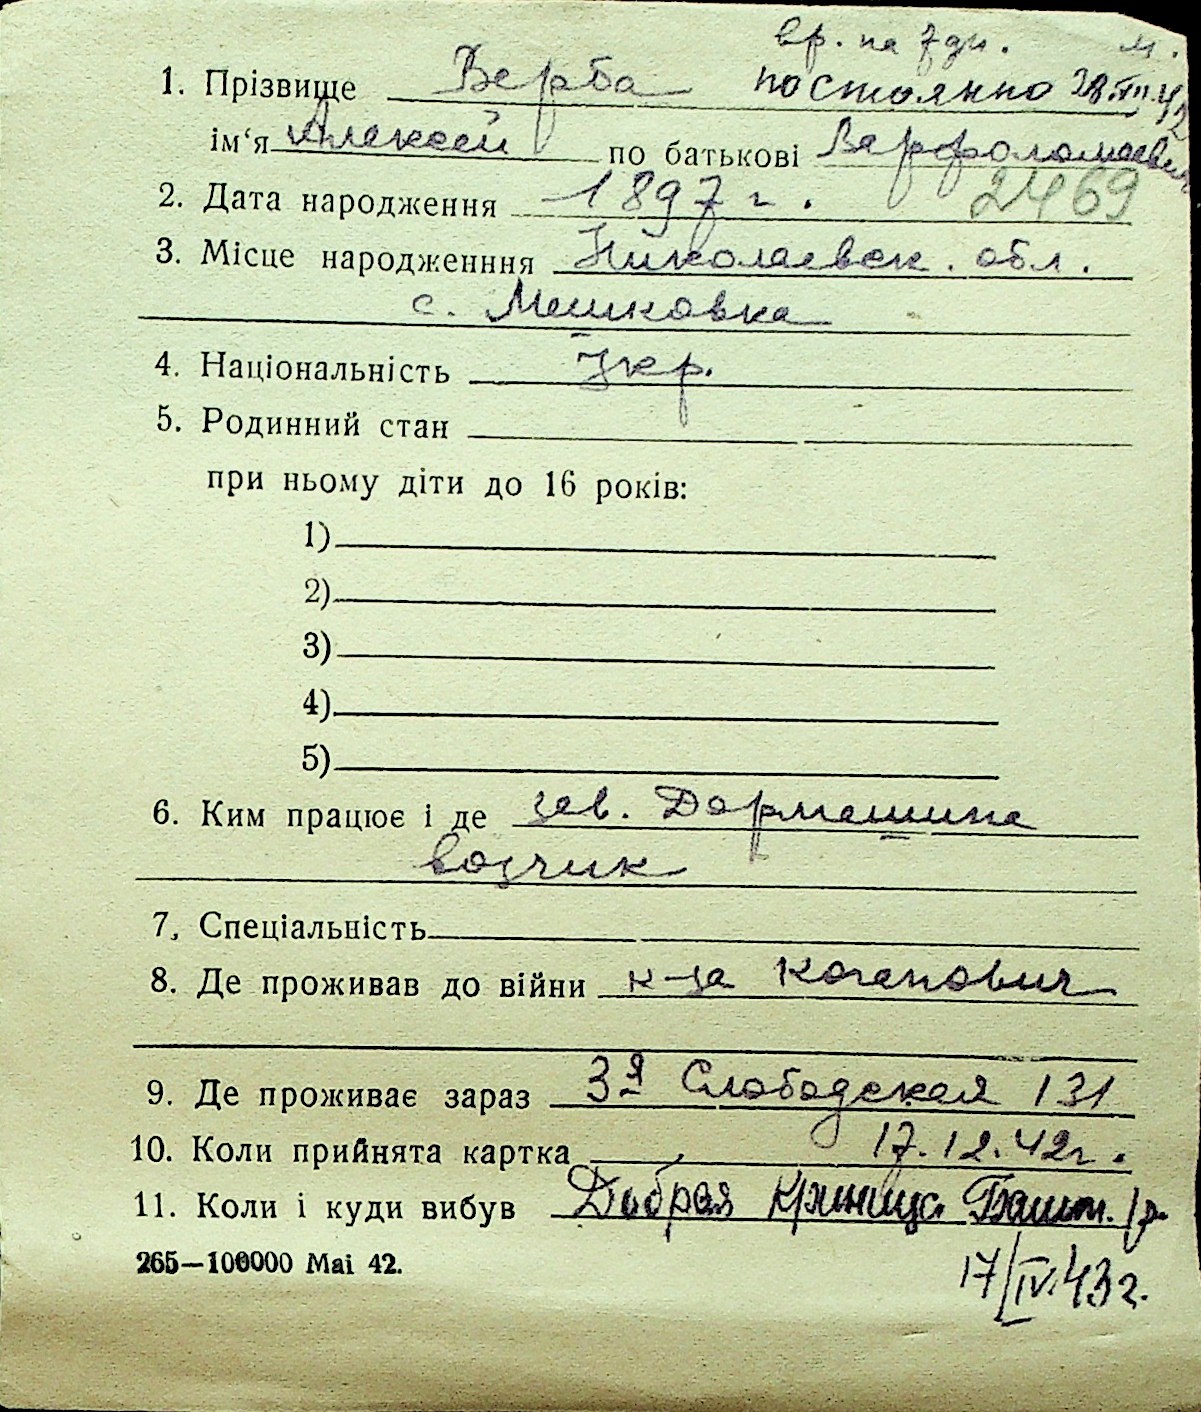 вр. на 7 дн. м.
1. Прізвище Верба постоянно 28.XII.42
ім'я Алексей по батькові Варфоломеевич
2. Дата народження 1897 г. 2469
3. Місце народженння Николаевск. обл.
с. Мешковка
4. Національність Укр.
5. Родинний стан
при ньому діти до 16 років:
1)
2)
3)
4)
5)
6. Ким працює і де зав. Дормашина
возчик
7, Спеціальність
8. Де проживав до війни к-за Каганович
9. Де проживає зараз 3я Слободская 131
10. Коли прийнята картка 17.12.42г.
11. Коли і куди вибув Добрая Криница Башт. р.
265—100000 Mai 42.
17/IV.43г.